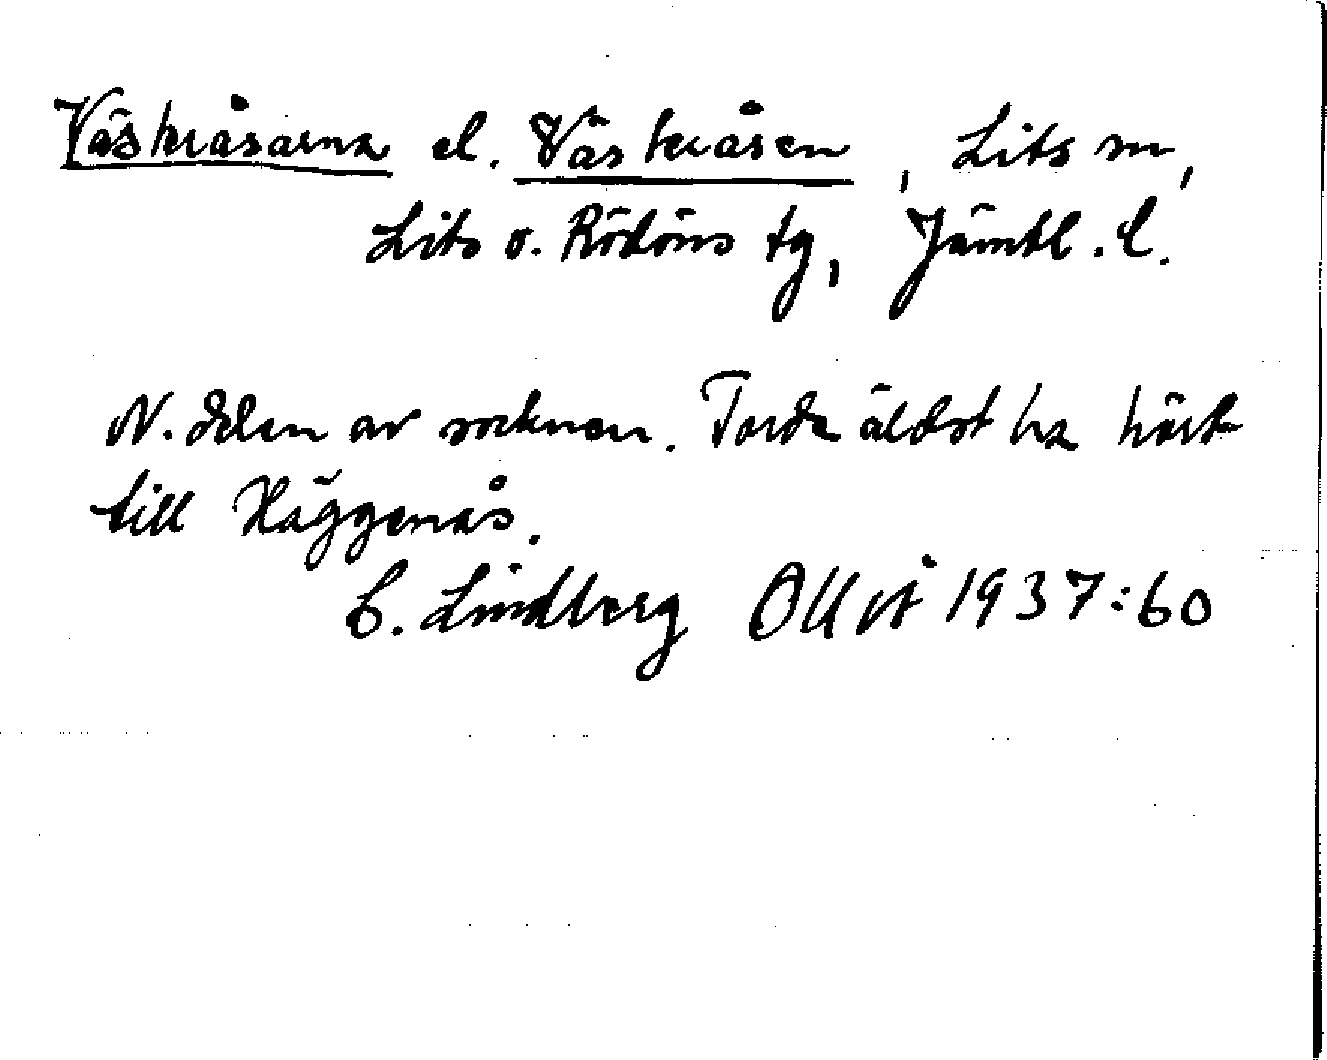 Västeråsarna el. Västeråsen, Lits sn,
Lits o. Rödöns tg, Jämtl. l.
N. delen av socknen. Torde äldst ha hört
till Häggenås.
C. Lindberg OUÅ 1937:60